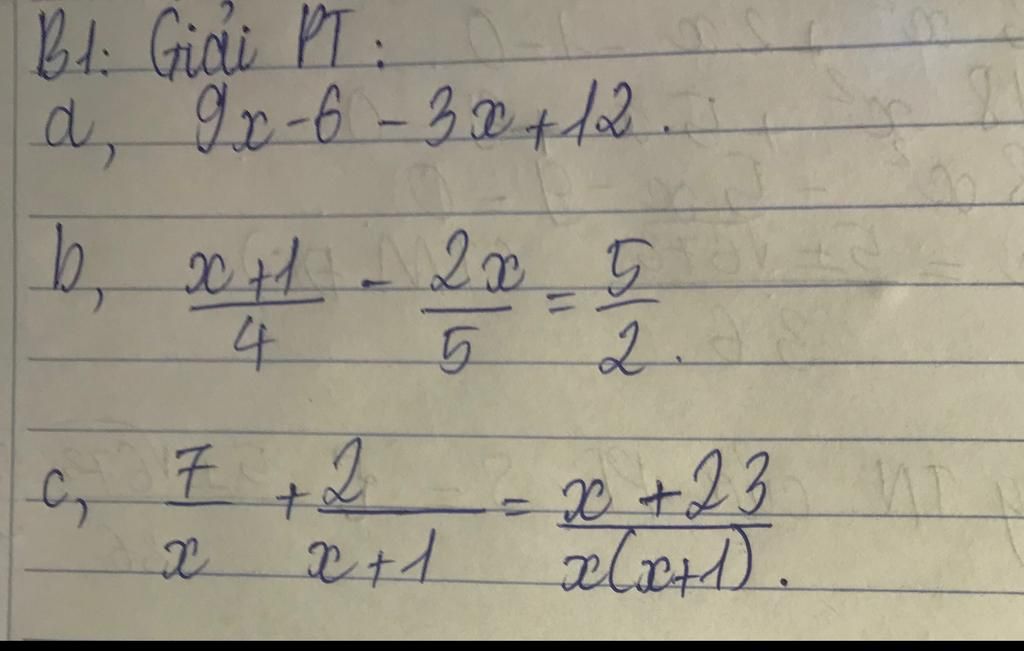 B1: Giải PT:
a, 9x - 6 - 3x + 12.
b, \frac{x+1}{4} - \frac{2x}{5} = \frac{5}{2}.
c, \frac{7}{x} + \frac{2}{x+1} = \frac{x+23}{x(x+1)}.